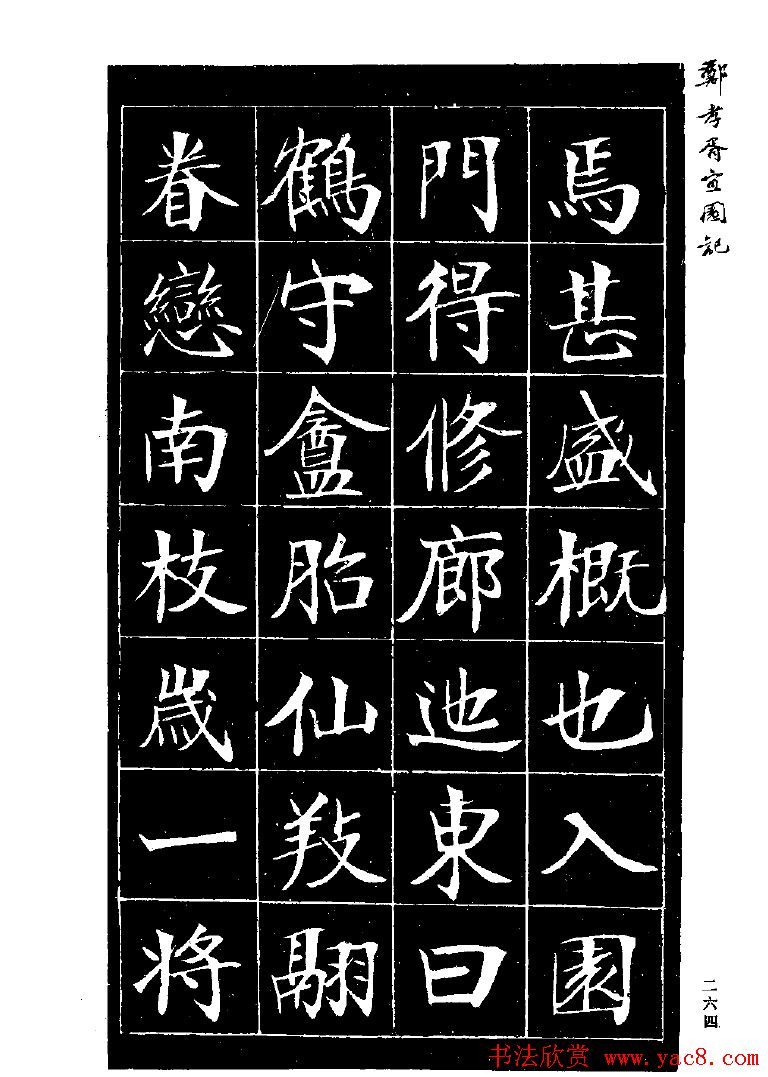 鄭孝胥宜園記
焉甚盛概也入園
門得修廊迤東曰
鶴守盦胎仙𢼝翮
眷戀南枝歲一將
二六四
书法欣赏 www.yac8.com